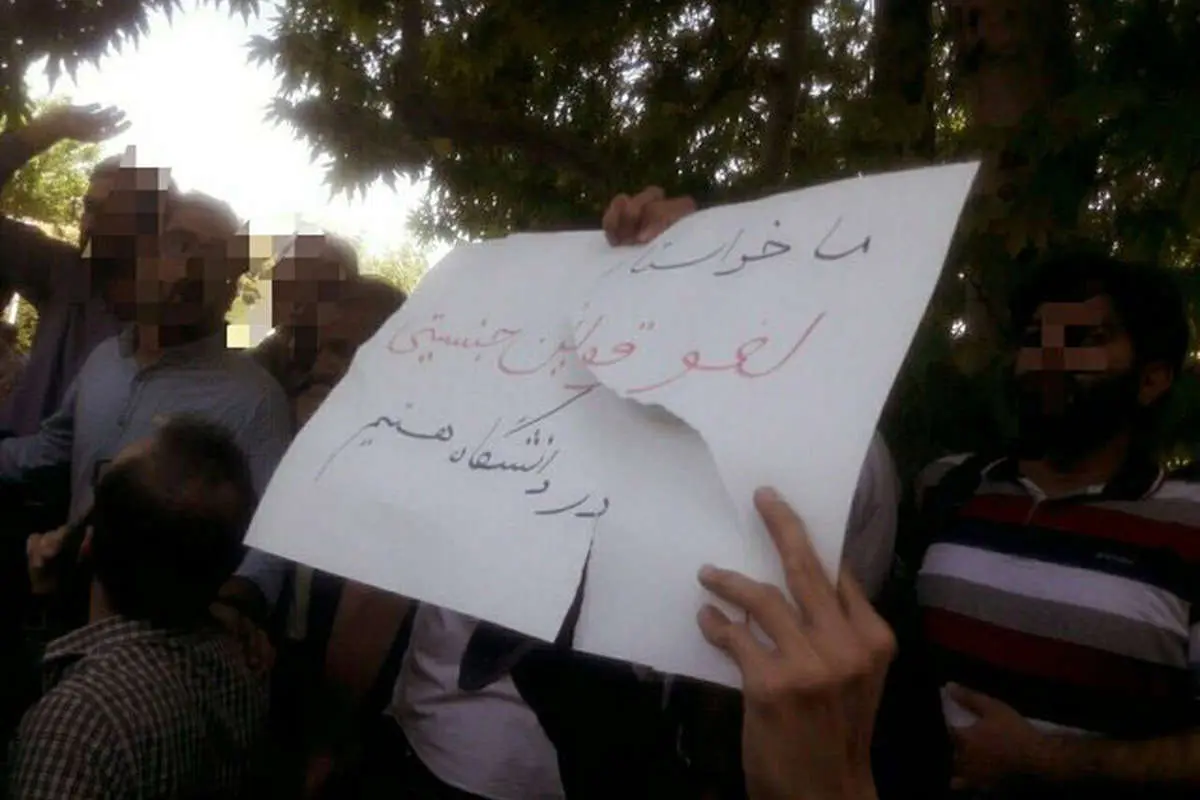 ما خواستار
لغو قوانین جنسیتی
در دانشگاه هستیم